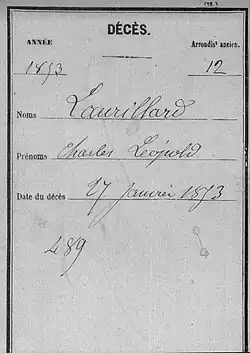 DÉCÈS.
ANNÉE Arrondis' ancien.
1853 12
Noms Laurillard
Prénoms Charles Léopold
Date du décès 27 Janvier 1853
489